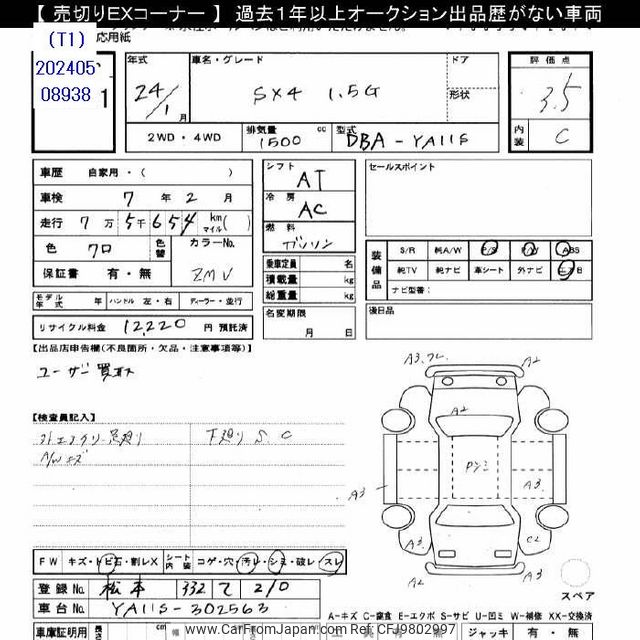 【 売切りEXコーナー 】 過去１年以上オークション出品歴がない車両
(T1)
応用紙
202405
08938
1
年式 車名・グレード ドア
24/1 月 SX4 1.5G
形状
2WD・4WD 排気量 1500 cc 型式 DBA-YA11S
評価点
3.5
内装 C
車歴 自家用・( )
車検 7 年 2 月
走行 7 万 5 千 654 km マイル ( )
色 クロ 色替 カラーNo.
保証書 有・無 ZMV
モデル年式 年 ハンドル 左・右 ディーラー・並行
リサイクル料金 12,220 円 預託済
シフト AT
冷房 AC
燃料 ガソリン
乗車定員 名
積載量 kg
総重量 kg
名変期限
月 日
セールスポイント
装備品 S/R 純A/W P/S P/W ABS
純TV 純ナビ 革シート 外ナビ エアB
ナビ型番:
後日品
【出品店申告欄(不良箇所・欠品・注意事項等)】
ユーザー買取
【検査員記入】
下廻り S C
A/W キズ
A3 A2
A2
Pシミ
A3 A3 A3
A2 A3 C2
FW キズ・トビ石・割レX シート内装 コゲ・穴・汚レ・シミ・破レ・スレ
登録No. 松本 332 て 210
車台No. YA11S-302563
スペア
A-キズ C-腐食 E-エクボ S-サビ U-凹ミ W-補修 XX-交換済
車庫証明用 長さ 幅 有・無 ジャッキ 有・無
www.CarFromJapan.com Ref:CFJ9802997